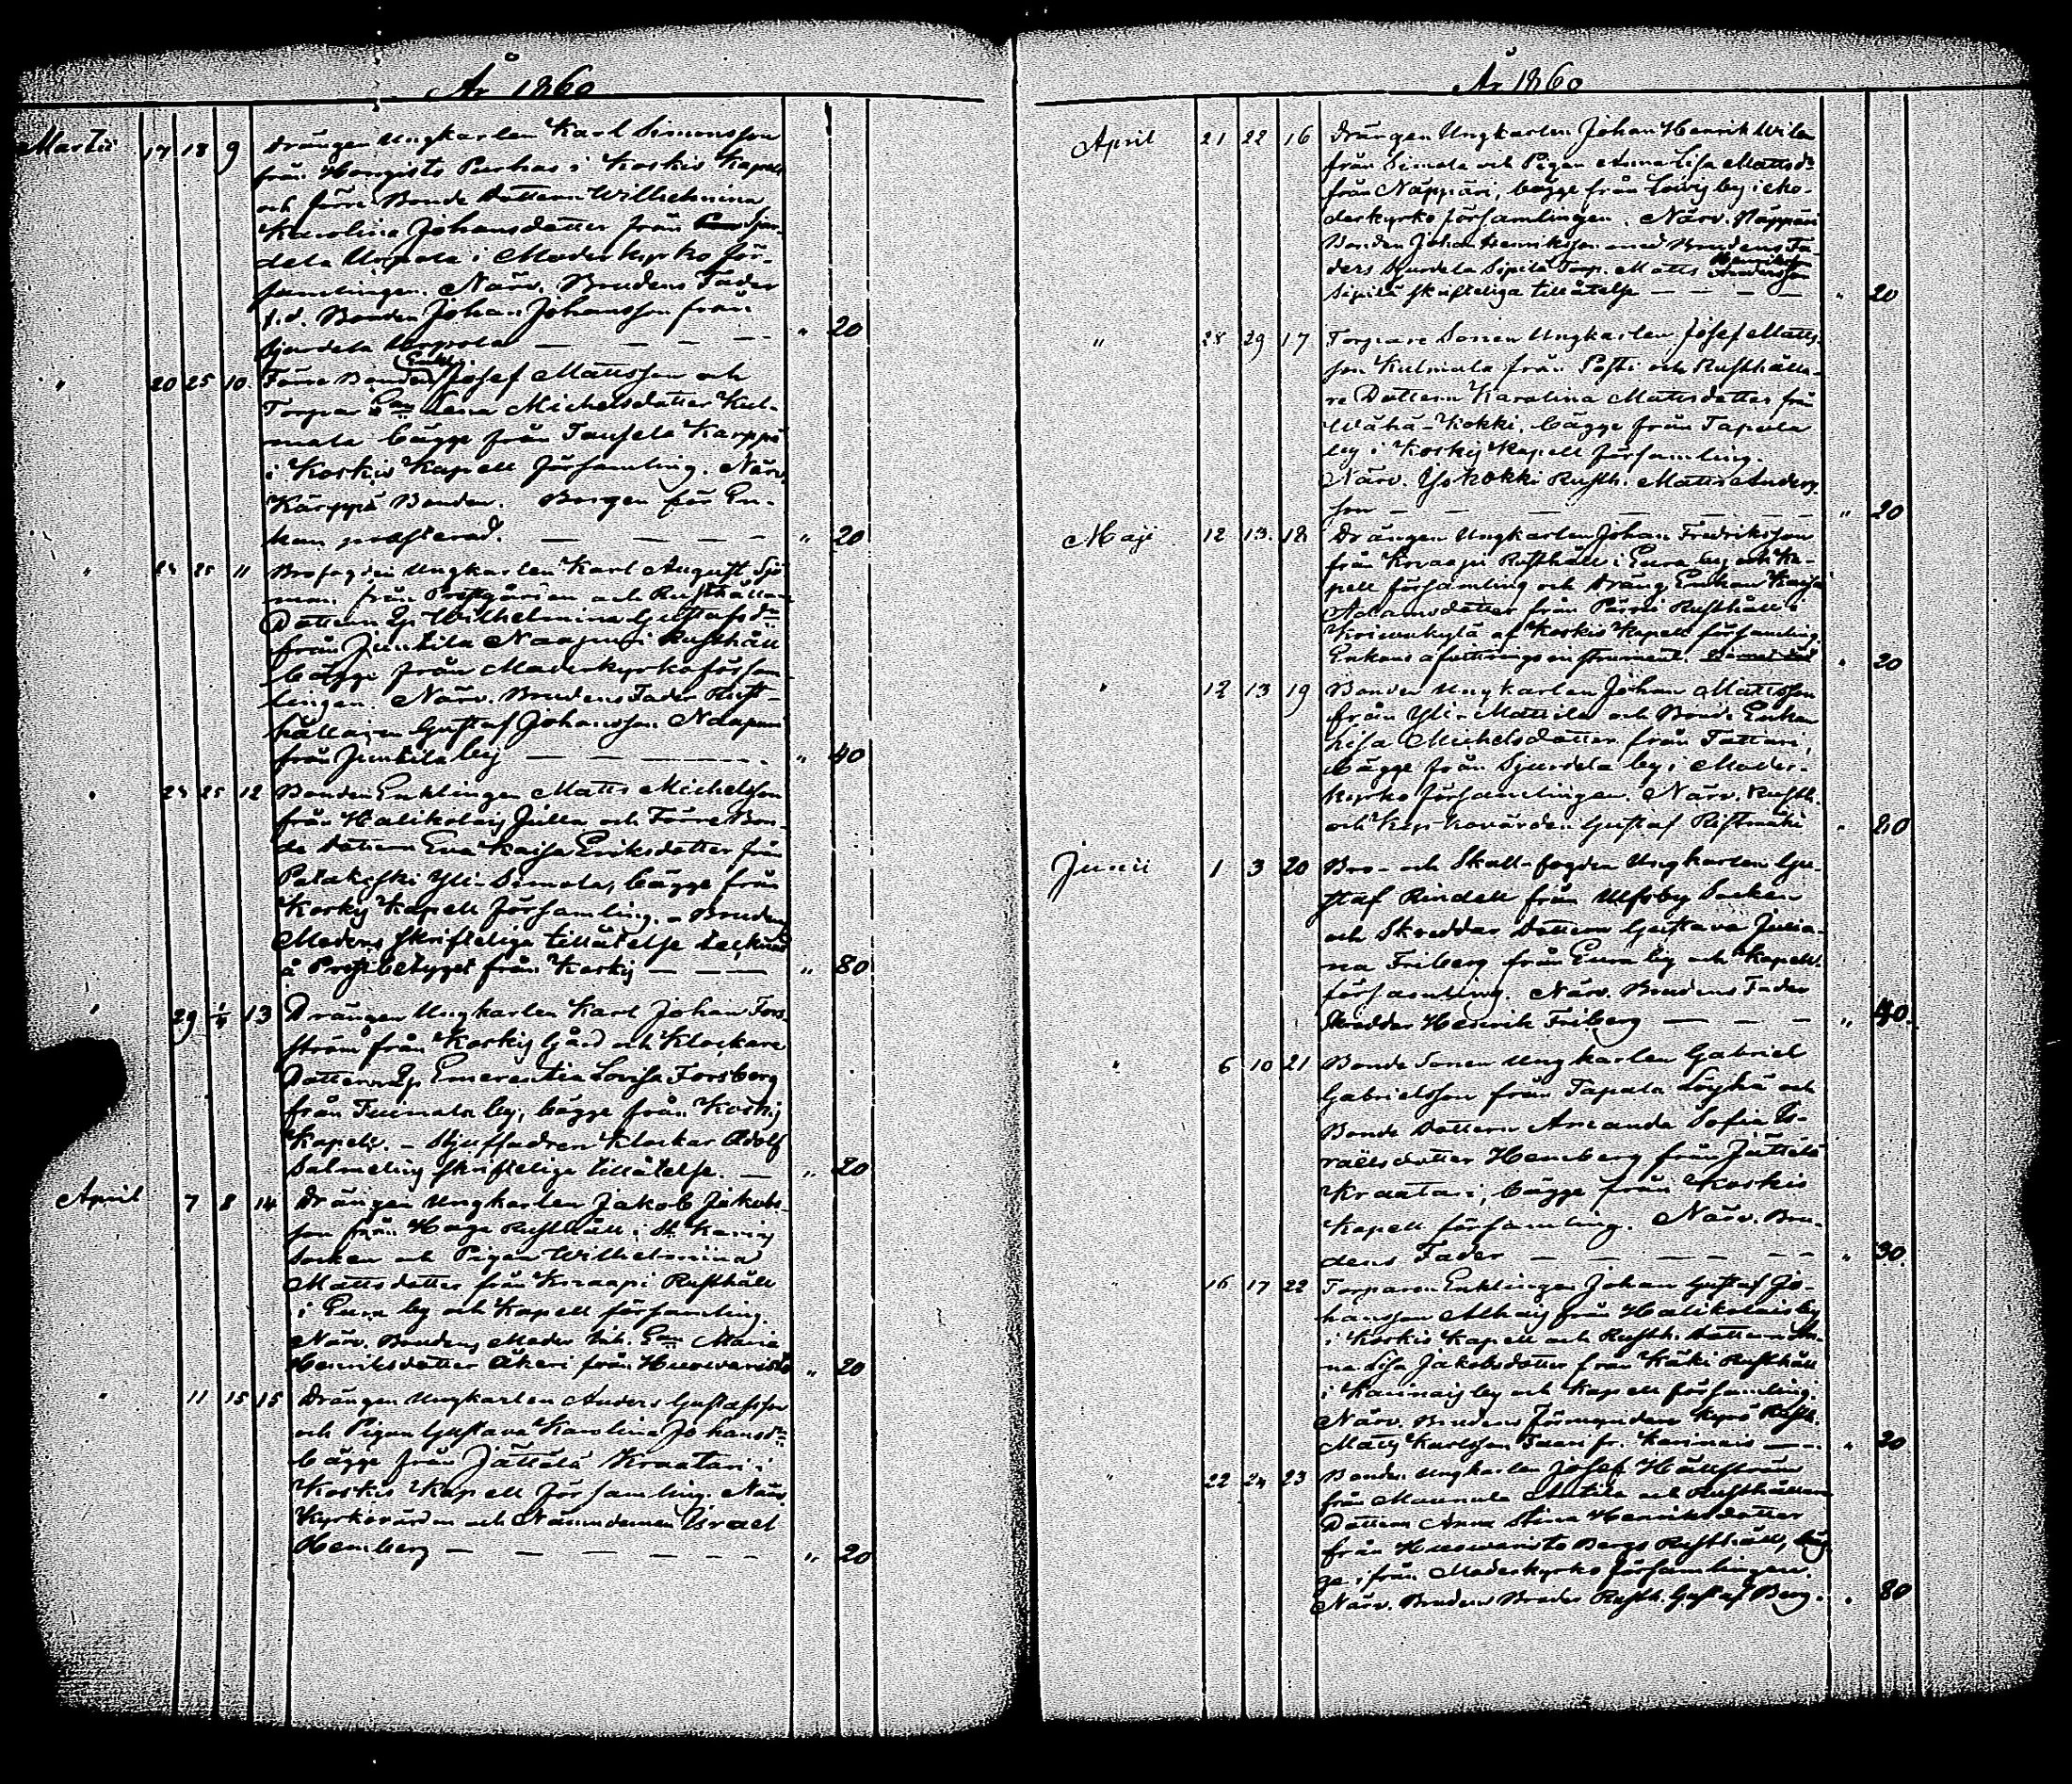 År 1860
Martii 17 18 9 Drängen Ungkarlen Karl Simonsson
från Hongisto Purhas i Koskis Kapell
och förre Bonde Dottern Wilhelmina
Karolina Johansdotter från Sjur-
dela Uppola i Moderkyrko för-
samlingen. Närv. Brudens Fader
f.d. Bonden Johan Johansson från
Sjurdela — — — " 20
" 20 25 10 Förre Bonden Enkl. Josef Mattsson och
Torpar Lena Michelsdotter Kul-
mala bägge från Karppi
i Koskis Kapell församling. Närv.
Kärppä Bonden. Borgen för En-
kan presterad. — — — — " 20
" 24 25 11 Brofogden Ungkarlen Karl August Sjö-
man från Prestgården och Rusthållare
Dottern Wilhelmina Gustafsdr
från Juntila Naapuri Rusthåll
bägge från Moderkyrkoförsam-
lingen. Närv. Brudens Fader Rust-
hållaren Gustaf Johansson Naapuri
från Juntila by — — — " 40
" 24 25 12 Bonden Enklingen Matts Michelsson
från Halikolais Julla och Förre Bon-
de Dottern Eva Kaisa Eriksdotter från
Patakoski Yli-Simola, bägge från
Koskis Kapell församling. - Brudens
Moders skrifteliga tillåtelse tecknad
å Prestbetyget från Koskis — — — " 80
" 29 1/4 13 Drängen Ungkarlen Karl Johan Fors-
ström från Koskis Gård och Klockare
Dottern Emerentia Lovisa Forsberg
från Tuimala by, bägge från Koskis
Kapell. - Stjuffadren Klockar Adolf
Salmelins skrifteliga tillåtelse. — " 20
April 7 8 14 Drängen Ungkarlen Jakob Jakobs-
son från Haga Rusthåll i St. Karins
Socken och Pigan Wilhelmina
Mattsdotter från Knaapi Rusthåll
i Eura by och Kapell församling.
Närv. Brudens Moder Maria
Henriksdotter Åkeri från " 20
" 11 15 15 Drängen Ungkarlen Anders Gustafsson
och Pigan Gustava Karolina Johansdr
bägge från Jättälä Kraatari i
Koskis Kapell församling. Närv.
Kyrkovärden och Nämndeman Israel
Hemberg — — — — — " 20
År 1860
April 21 22 16 Drängen Ungkarlen Johan Henrik Wilen
från Simola och Pigan Anna Lisa Mattsdr
från Näppäri, bägge från by i Mo-
derkyrko församlingen. Närv. Näppäri
Bonden Johan Henriksson med Brudens Fa-
ders Sjurdela Sipilä Torp. Matts Henriksson
Sipilä skrifteliga tillåtelse — — — — " 20
" 28 29 17 Torpare Sonen Ungkarlen Josef Matts-
son Kulmala från Posti och Rusthålla-
re Dottern Karolina Mattsdotter från
Wähä-Kokki, bägge från Tapala
by i Koskis Kapell församling.
Närv. Iso Kokki Rusth. Matts Anders-
son — — — — — — " 20
Maji 12 13 18 Drängen Ungkarlen Johan Fredriksson
från Knaapi Rusthåll i Eura by och Ka-
pell församling och Dräng Enkan Kaisa
Adamsdotter från Rusthåll i
af Koskis Kapell församling.
Enkans afvittrings instrument. " 20
" 12 13 19 Bonden Ungkarlen Johan Mattsson
från Yli-Mattila och Bonde Enkan
Lisa Michelsdotter från Tattari,
bägge från Sjurdela by i Moder-
kyrko församlingen. Närv. Rusth.
och Kyrkovärden Gustaf Ristimäki " 80
Junii 1 3 20 Bro- och Skall-fogden Ungkarlen Gu-
staf Rindell från Ulfsby Socken
och Skreddar Dottern Gustava Julia-
na Friberg från Eura by och Kapell-
församling. Närv. Brudens Fader
Skreddar Henrik Friberg — — — " 40.
" 6 10 21 Bonde Sonen Ungkarlen Gabriel
Gabrielsson från Tapala Löyhä och
Bonde Dottern Amanda Sofia Is-
raëlsdotter Hemberg från Jättälä
Kraatari, bägge från Koskis
Kapell församling. Närv. Bru-
dens Fader — — — — — " 30.
" 16 17 22 Torparen Enklingen Johan Gustaf Jo-
hansson från Halikolais by
i Koskis Kapell och Rusth. Dottern An-
na Lisa Jakobsdotter från Käki Rusthåll
i Karinais by och Kapell församling.
Närv. Brudens Förmyndare Kyrö Rusth.
Matts Karlsson fr. Karinais — — " 20
" 22 24 23 Bonden Ungkarlen Josef Hällström
från Maunula Anttila och Rusthållare
Dottern Anna Stina Henriksdotter
från Bergs Rusthåll, bäg-
ge från Moderkyrko församlingen.
Närv. Brudens Broder Rusth. Gustaf Berg. " 80